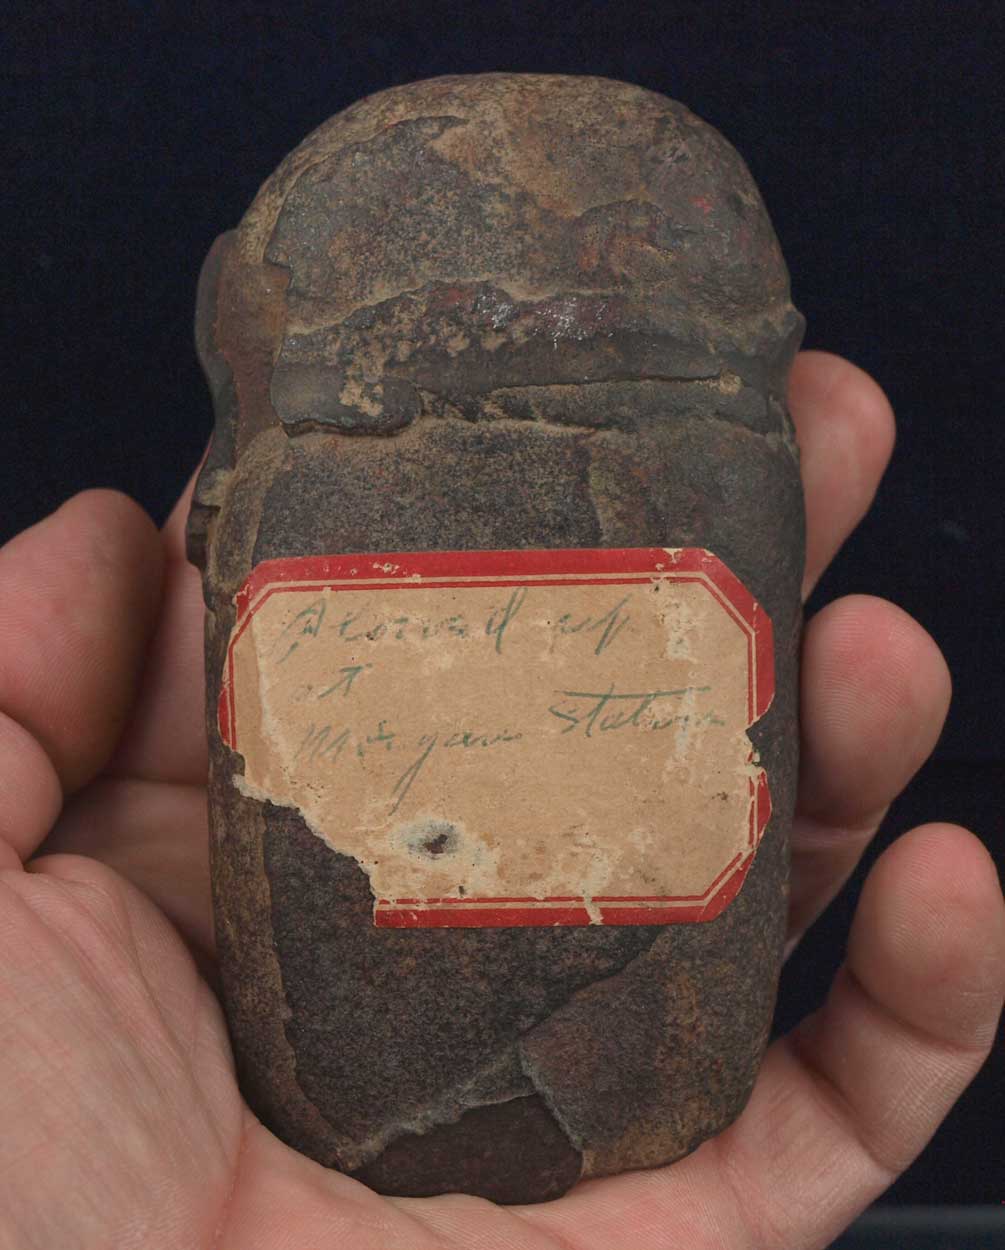 Plowed up
at
Morgans Station